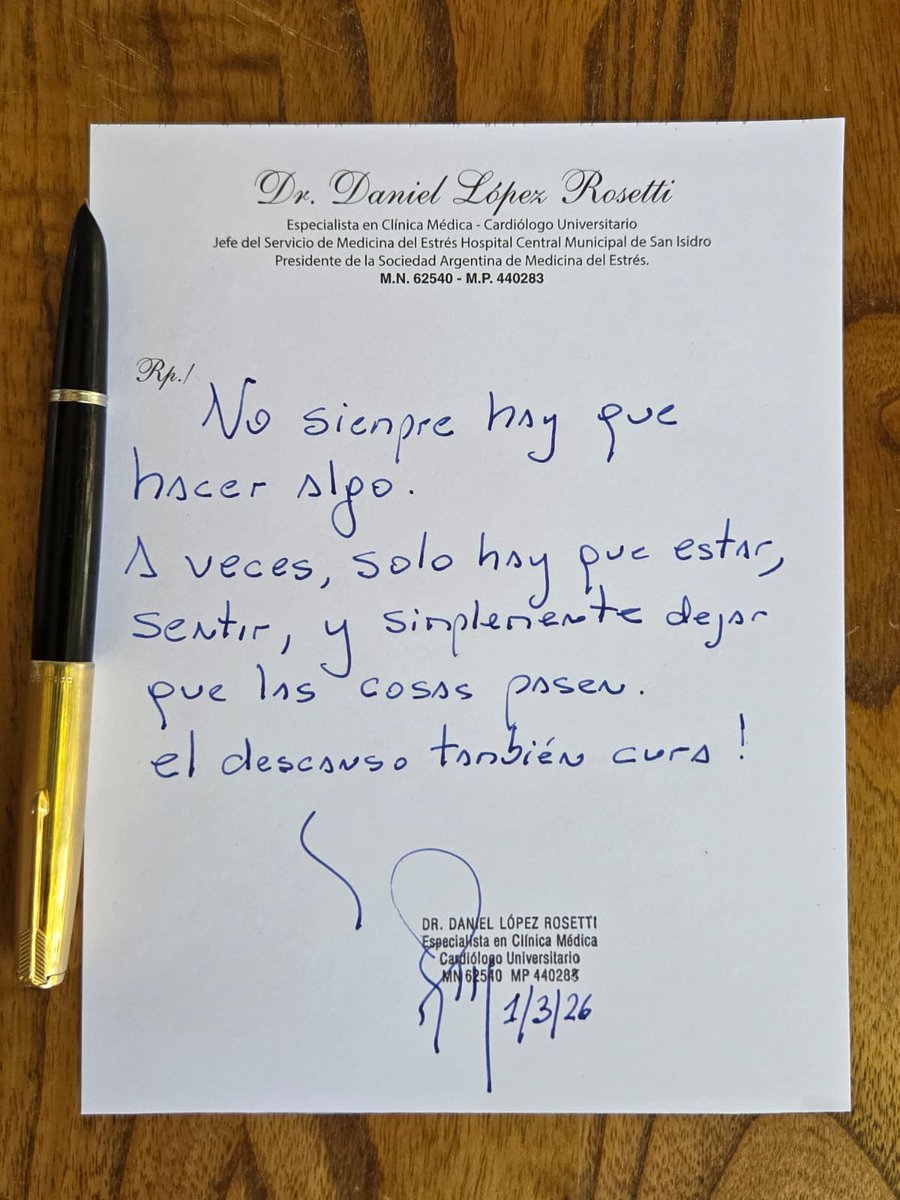 Dr. Daniel López Rosetti
Especialista en Clínica Médica - Cardiólogo Universitario
Jefe del Servicio de Medicina del Estrés Hospital Central Municipal de San Isidro
Presidente de la Sociedad Argentina de Medicina del Estrés.
M.N. 62540 - M.P. 440283
Rp./
No sienpre hay que
hacer algo.
A veces, solo hay que estar,
sentir, y sinplenente dejar
que las cosas pasen.
el descanso tanbién cura!
DR. DANIEL LÓPEZ ROSETTI
Especialista en Clínica Médica
Cardiólogo Universitario
MN 62540 MP 440283
1/3/26